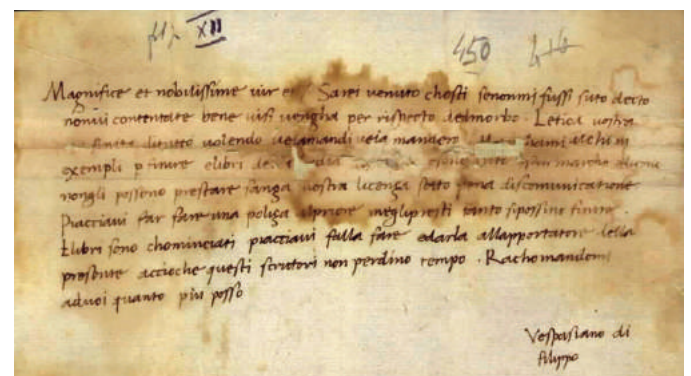 XII
450 446
Magnifice et nobilissime vir et Sarei venuto chosti senonmi fussi suto decto
nonvi contentate bene visi vengha per rispecto delmorbo . Letica vostra
finita ditutto volendo velamandi vela mandero
exempli p finire elibri
nongli possono prestare sanza vostra licenza sotto pena discomunicatione
Piacciavi far fare una poliza alpriore meglipresti tanto sipossino finire .
Elibri sono chominciati piacciavi falla fare edarla allapportatore della
presente accioche questi scriptori non perdino tempo . Rachomandomi
advoi quanto piu posso
Vespasiano di
filippo